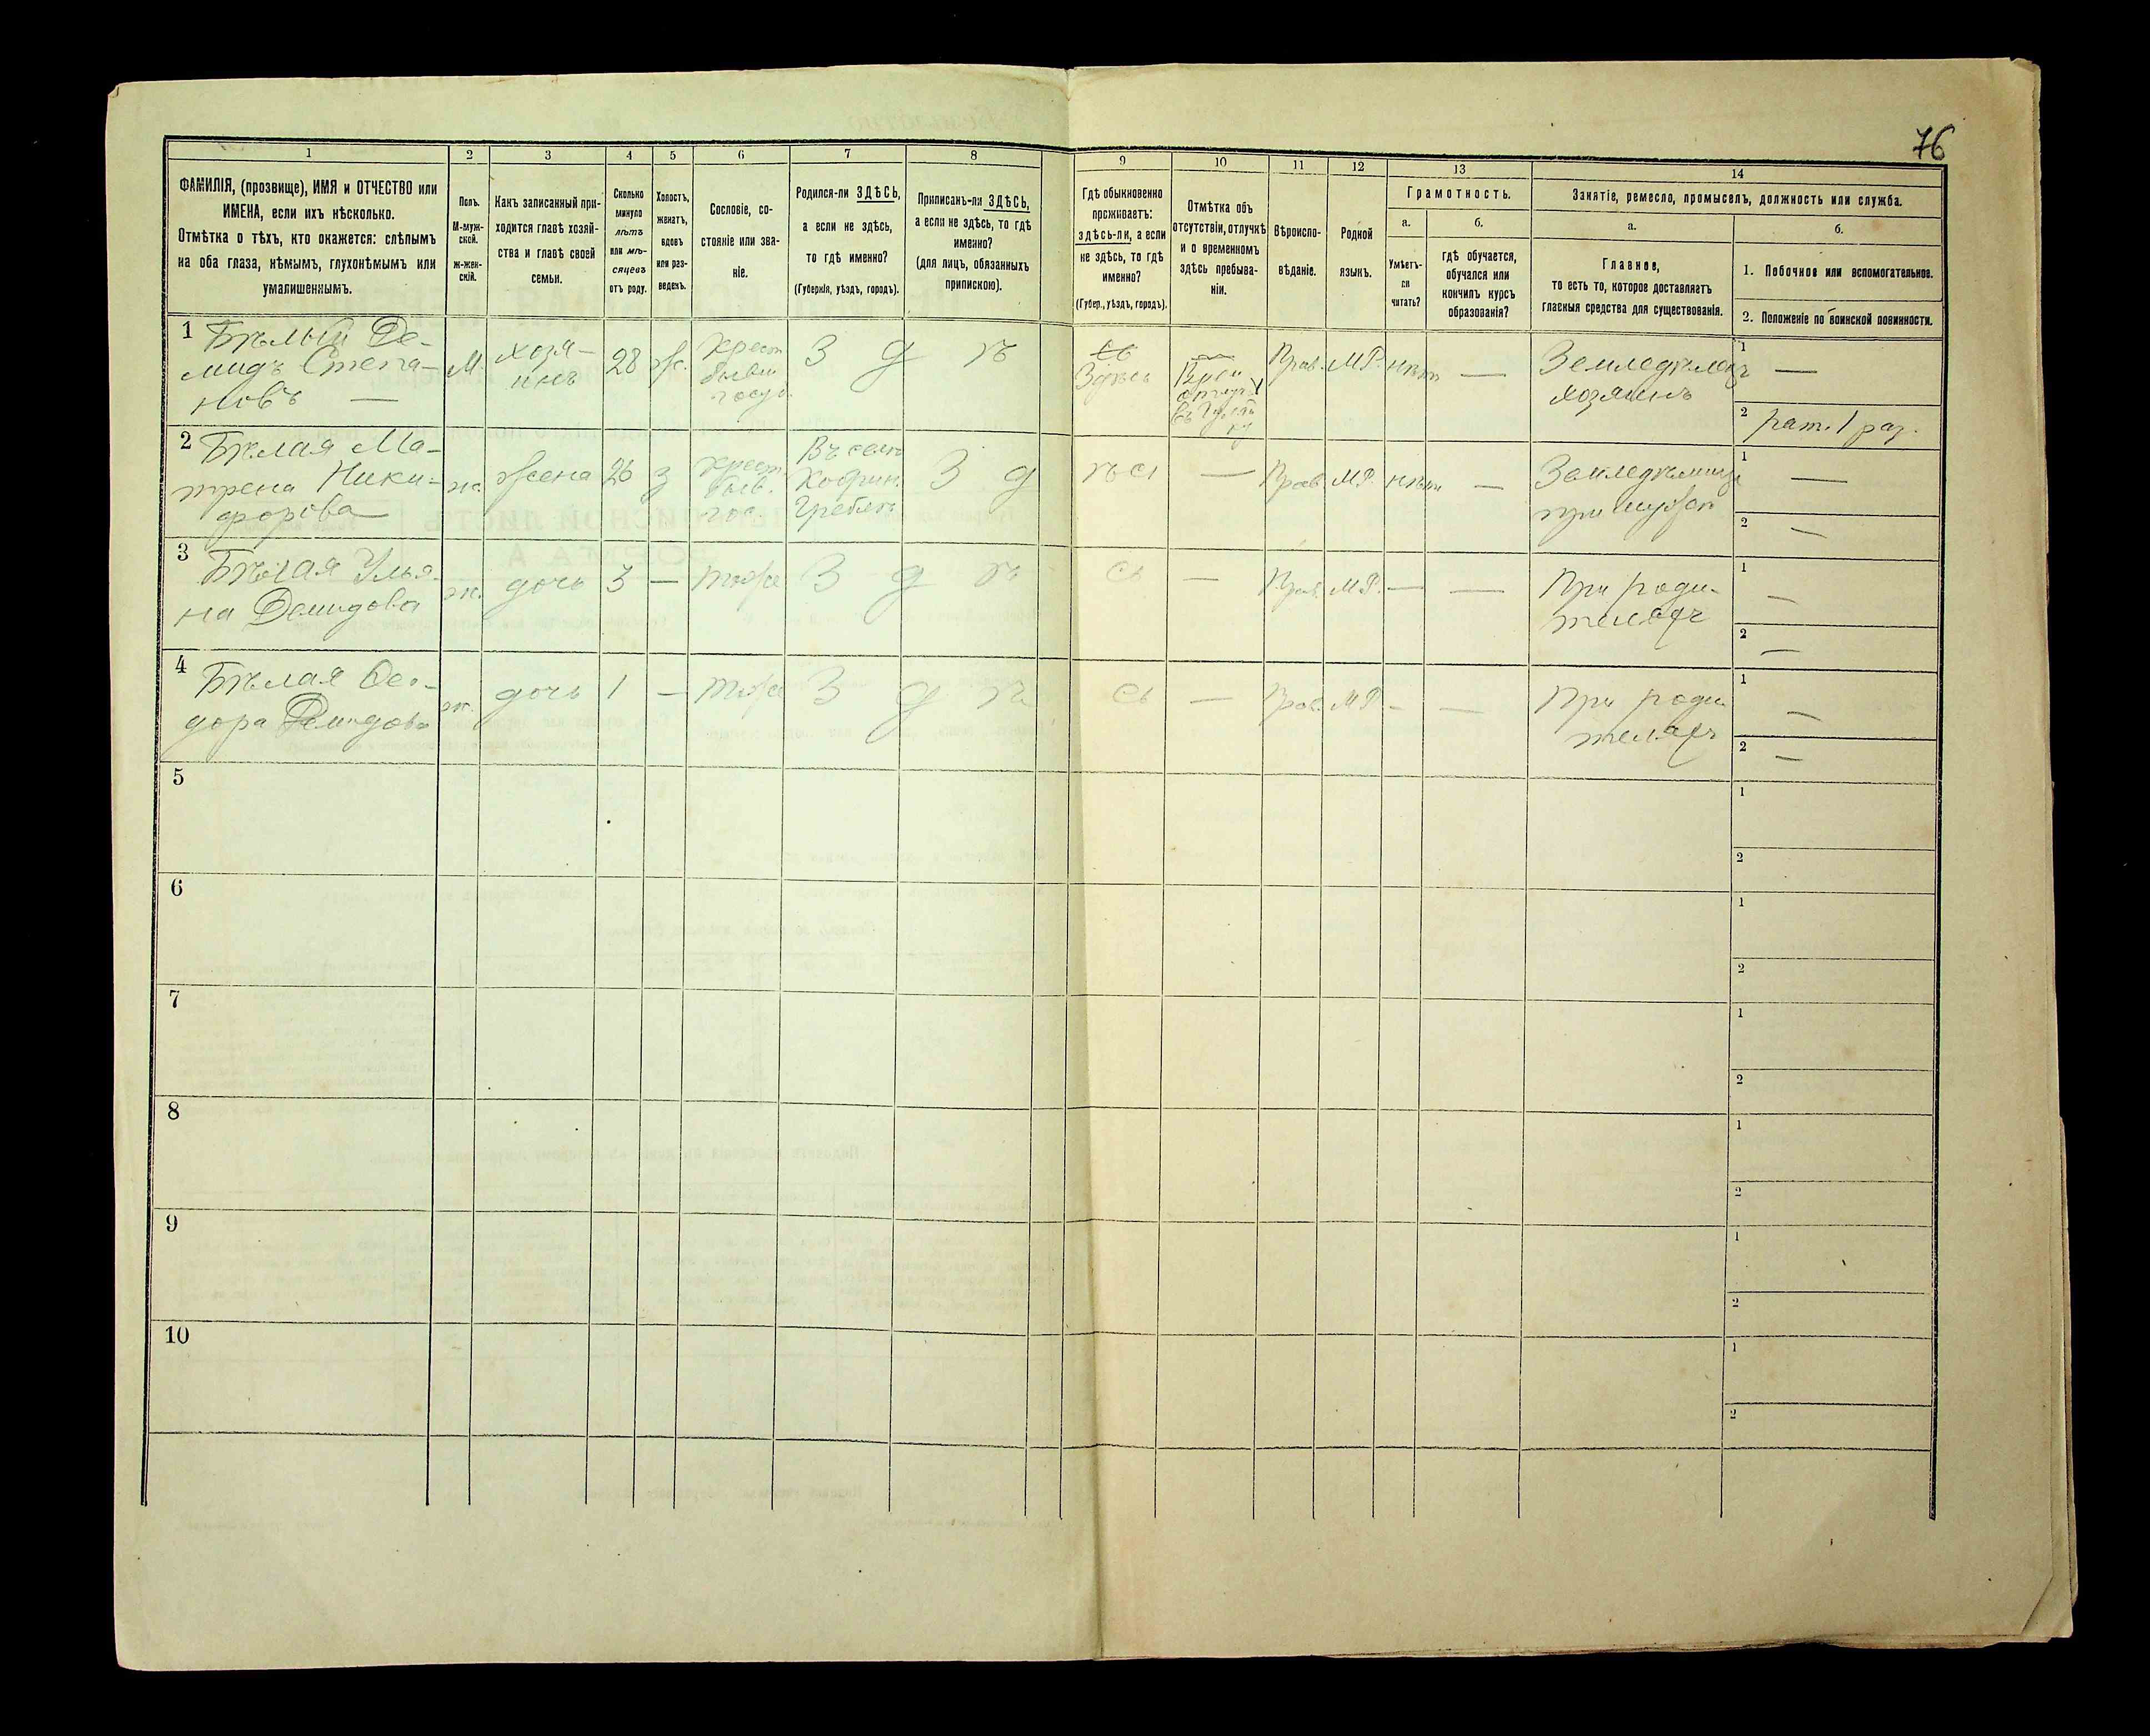 76
1 2 3 4 5 6 7 8 9 10 11 12 13 14
ФАМИЛІЯ, (прозвище), ИМЯ и ОТЧЕСТВО или
ИМЕНА, если ихъ нѣсколько.
Отмѣтка о тѣхъ, кто окажется: слѣпымъ
на оба глаза, нѣмымъ, глухонѣмымъ или
умалишеннымъ.
Полъ.
М-муж-
ской.
ж-жен-
скій.
Какъ записанный при-
ходится главѣ хозяй-
ства и главѣ своей
семьи.
Сколько
минуло
лѣтъ
или мѣ-
сяцевъ
отъ роду.
Холостъ,
женатъ,
вдовъ
или раз-
веденъ.
Сословіе, со-
стояніе или зва-
ніе.
Родился-ли ЗДѢСЬ,
а если не здѣсь,
то гдѣ именно?
(Губернія, уѣздъ, городъ).
Приписанъ-ли ЗДѢСЬ,
а если не здѣсь, то гдѣ
именно?
(для лицъ, обязанныхъ
припискою).
Гдѣ обыкновенно
проживаетъ:
здѣсь-ли, а если
не здѣсь, то гдѣ
именно?
(Губер., уѣздъ, городъ).
Отмѣтка объ
отсутствіи, отлучкѣ
и о временномъ
здѣсь пребыва-
ніи.
Вѣроиспо-
вѣданіе.
Родной
языкъ.
Грамотность.
а.
Умѣетъ-
ли
читать?
б.
гдѣ обучается,
обучался или
кончилъ курсъ
образованія?
Занятіе, ремесло, промыселъ, должность или служба.
а.
Главное,
то есть то, которое доставляетъ
главныя средства для существованія.
б.
1. Побочное или вспомогательное.
2. Положеніе по воинской повинности.
1 Бѣлый Де-
мидъ Степа-
новъ —
М.
хозя-
инъ
28
ж.
Крест
бывш
госуд.
З д ѣ
Здѣсь
Прав.
МР.
нѣтъ
—
Земледѣлецъ
хозяинъ
1 —
2 рат. 1 раз.
2 Бѣлая Ма-
трена Ники-
форова —
ж.
жена
26
з
Крест
быв.
гос.
Въ селѣ
З д ѣсь
—
Прав.
МР.
нѣтъ
—
при мужѣ
1 —
2 —
3 Бѣлая Улья-
на Демидова
ж.
дочь
3
—
тоже
З д ѣ сь
—
Прав.
МР.
—
—
При роди-
теляхъ
1 —
2 —
4 Бѣлая Ѳео-
дора Демидова
ж.
дочь
1
—
тоже
З д ѣ сь
—
Прав.
МР.
—
—
При роди-
теляхъ
1 —
2 —
5
1
2
6
1
2
7
1
2
8
1
2
9
1
2
10
1
2